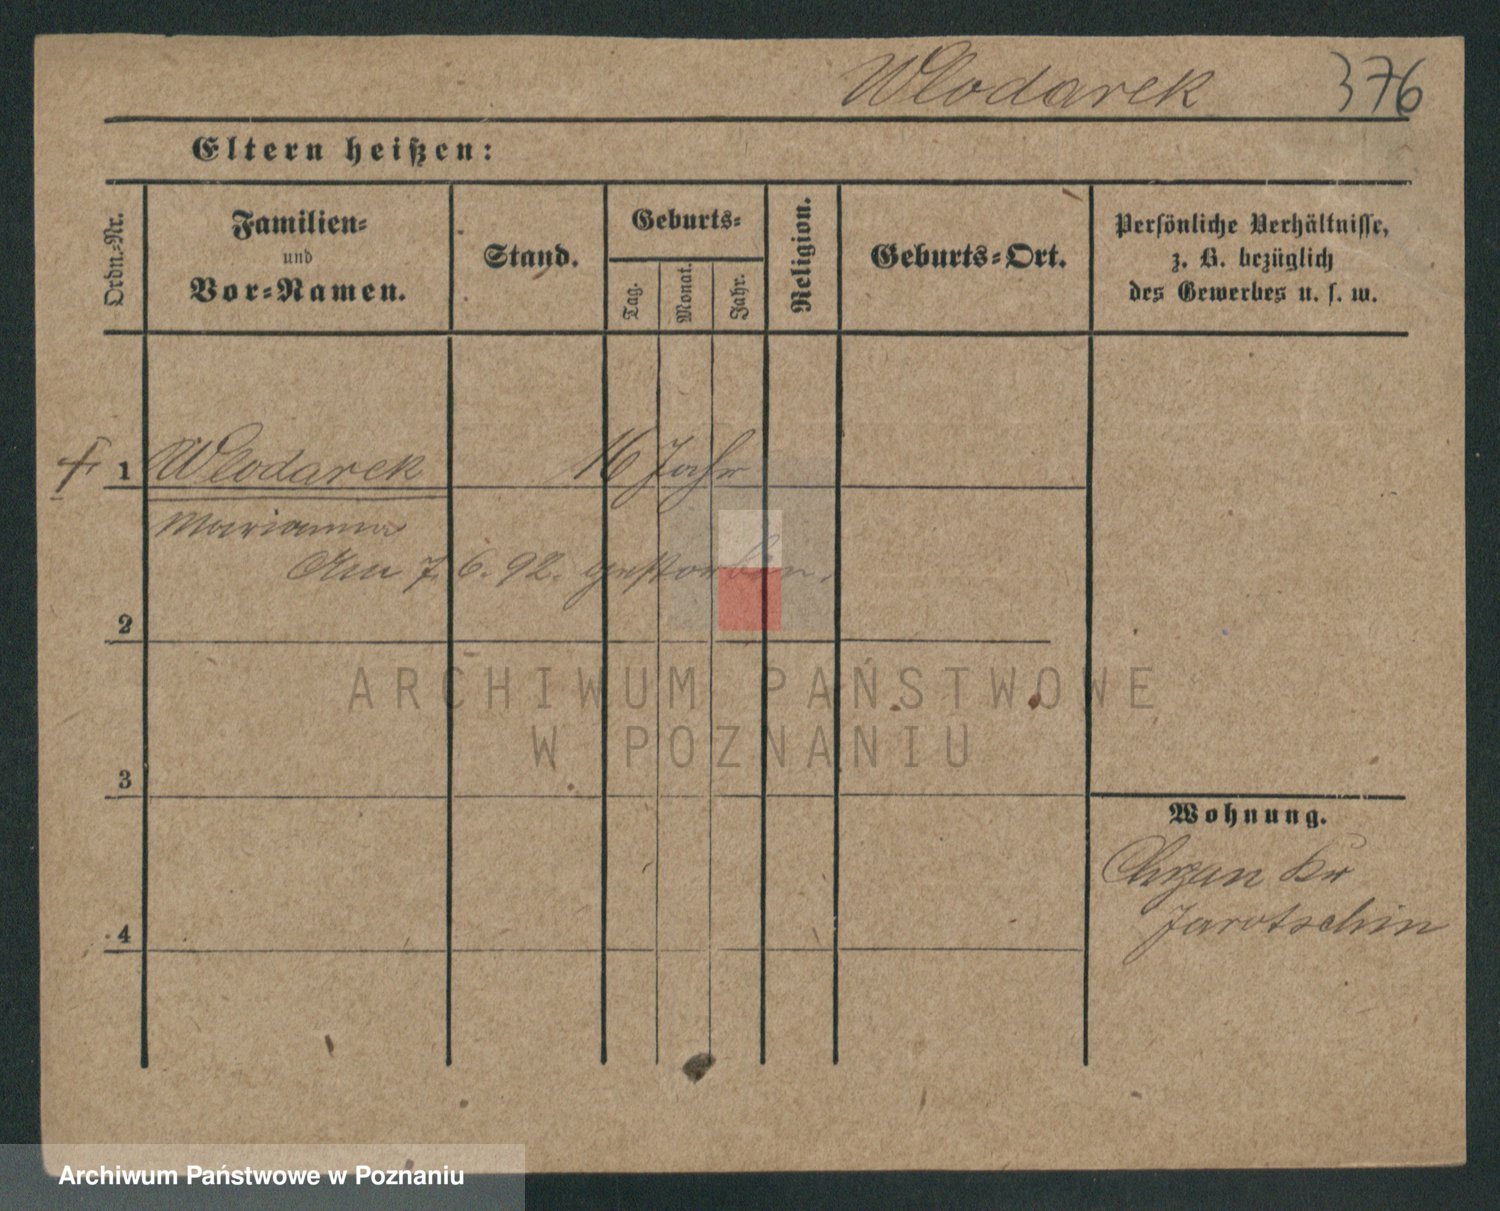 Wlodarek 376
Eltern heißen:
Ordn.-Nr.
Familien-
und
Vor-Namen.
Stand.
Geburts-
Tag.
Monat.
Jahr.
Religion.
Geburts-Ort.
Persönliche Verhältnisse,
z. B. bezüglich
des Gewerbes u. s. w.
1 Wlodarek 16 Jahr
Marianna
Am 7. 6. 92. gestorben.
2
ARCHIWUM PAŃSTWOWE
W POZNANIU
3
Wohnung.
Chrzan Kr
Jarotschin
4
Archiwum Państwowe w Poznaniu